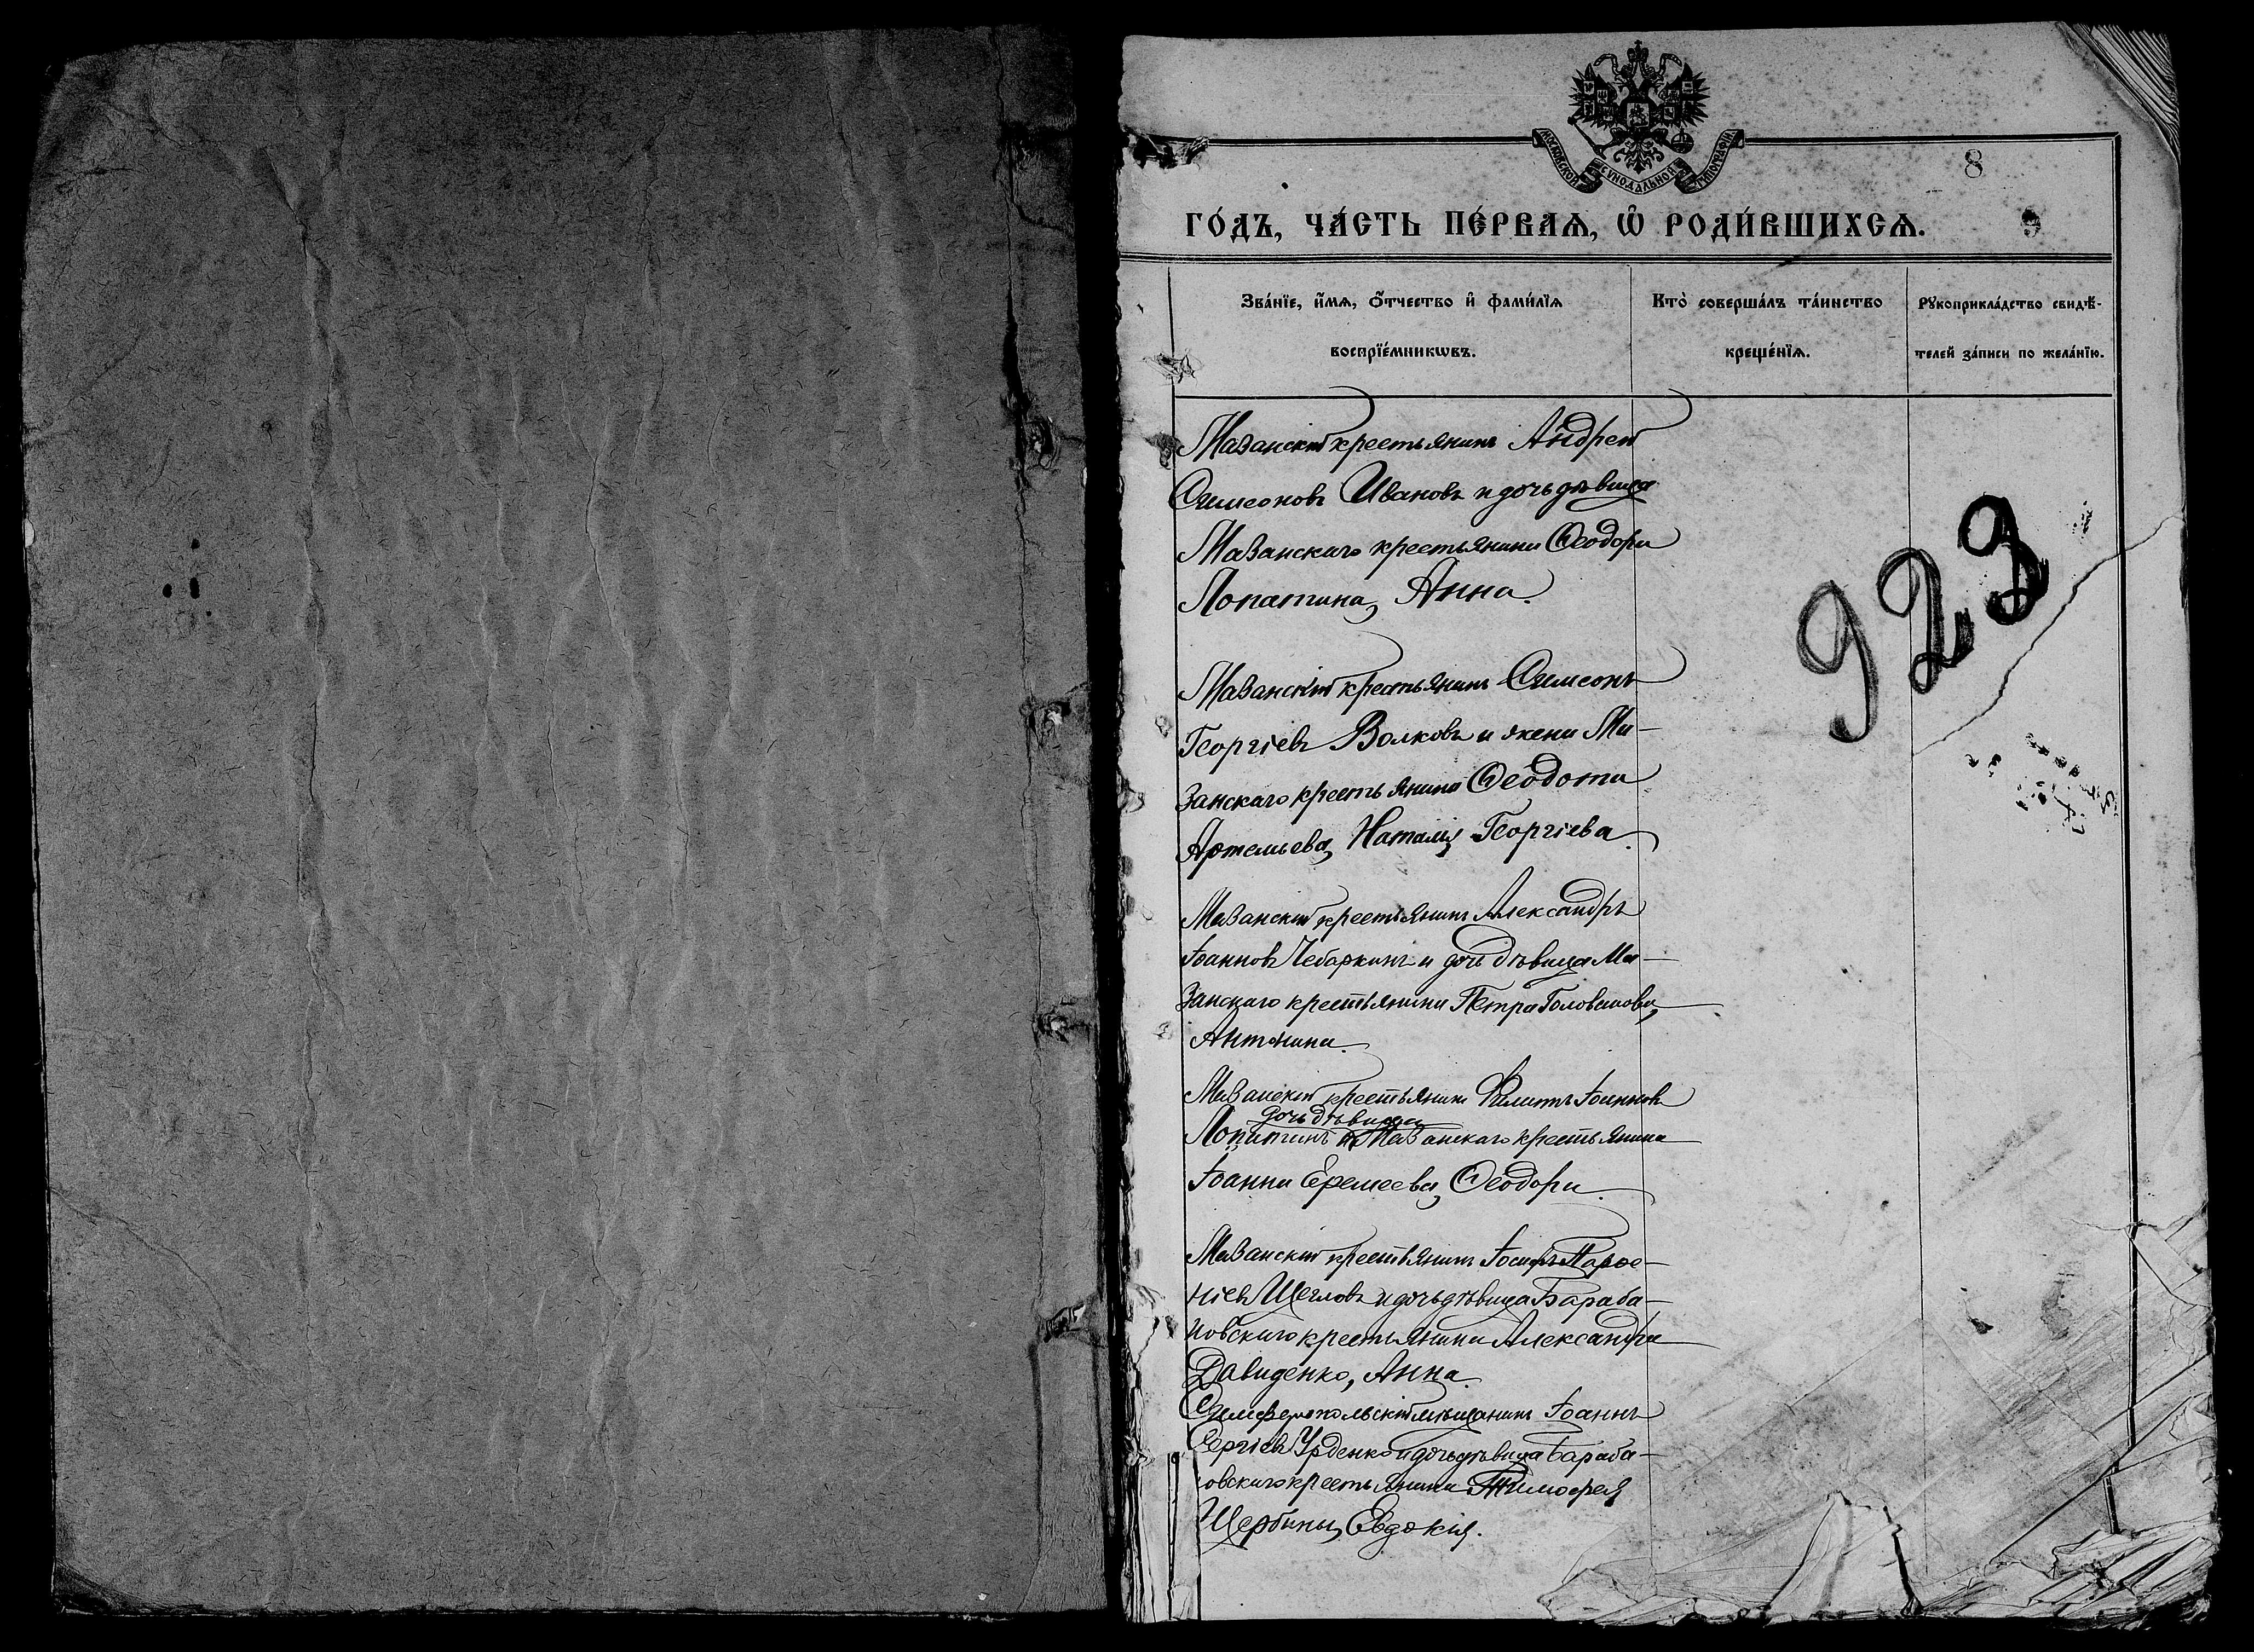 МОСКОВСКОЙ СУНОДАЛЬНОЙ ТИПОГРАФІИ
8
ГО́ДЪ, ЧА́СТЬ ПЕ́РВАѦ, Ѡ҆ РОДИ́ВШИХСѦ.
9
Зва́нїе, и҆́мѧ, ѻ҆́тчество и҆ фами́лїѧ
воспрїе́мникѡвъ.
Кто̀ соверша́лъ та́инство
креще́нїѧ.
Рꙋкоприкла́дство свидѣ́-
телей за́писи по жела́нїю.
Мазанскій крестьянинъ Андрей
Симеоновъ Ивановъ и дочь дѣвица
Мазанскаго крестьянина Ѳеодора
Лопатина, Анна.
923
Мазанскій крестьянинъ Симеонъ
Георгіевъ Волковъ и жена Ма-
занскаго крестьянина Ѳеодота
Артемьева, Наталія Георгіева.
Мазанскій крестьянинъ Александръ
Іоанновъ Чебаркинъ и дочь дѣвица Ма-
занскаго крестьянина Петра Голованова,
Антонина.
Мазанскій крестьянинъ Филиппъ Іоанновъ
дочь дѣвица
Лопатинъ и Мазанскаго крестьянина
Іоанна Еремеева, Ѳеодора.
Мазанскій крестьянинъ Іосифъ Парѳе-
ніевъ Щегловъ и дочь дѣвица Бараба-
новскаго крестьянина Александра
Давиденко, Анна.
Симферопольскій мѣщанинъ Іоаннъ
Сергіевъ Урденко и дочь дѣвица Бараба-
овскаго крестьянина Тимофея
Щербины, Евдокія.